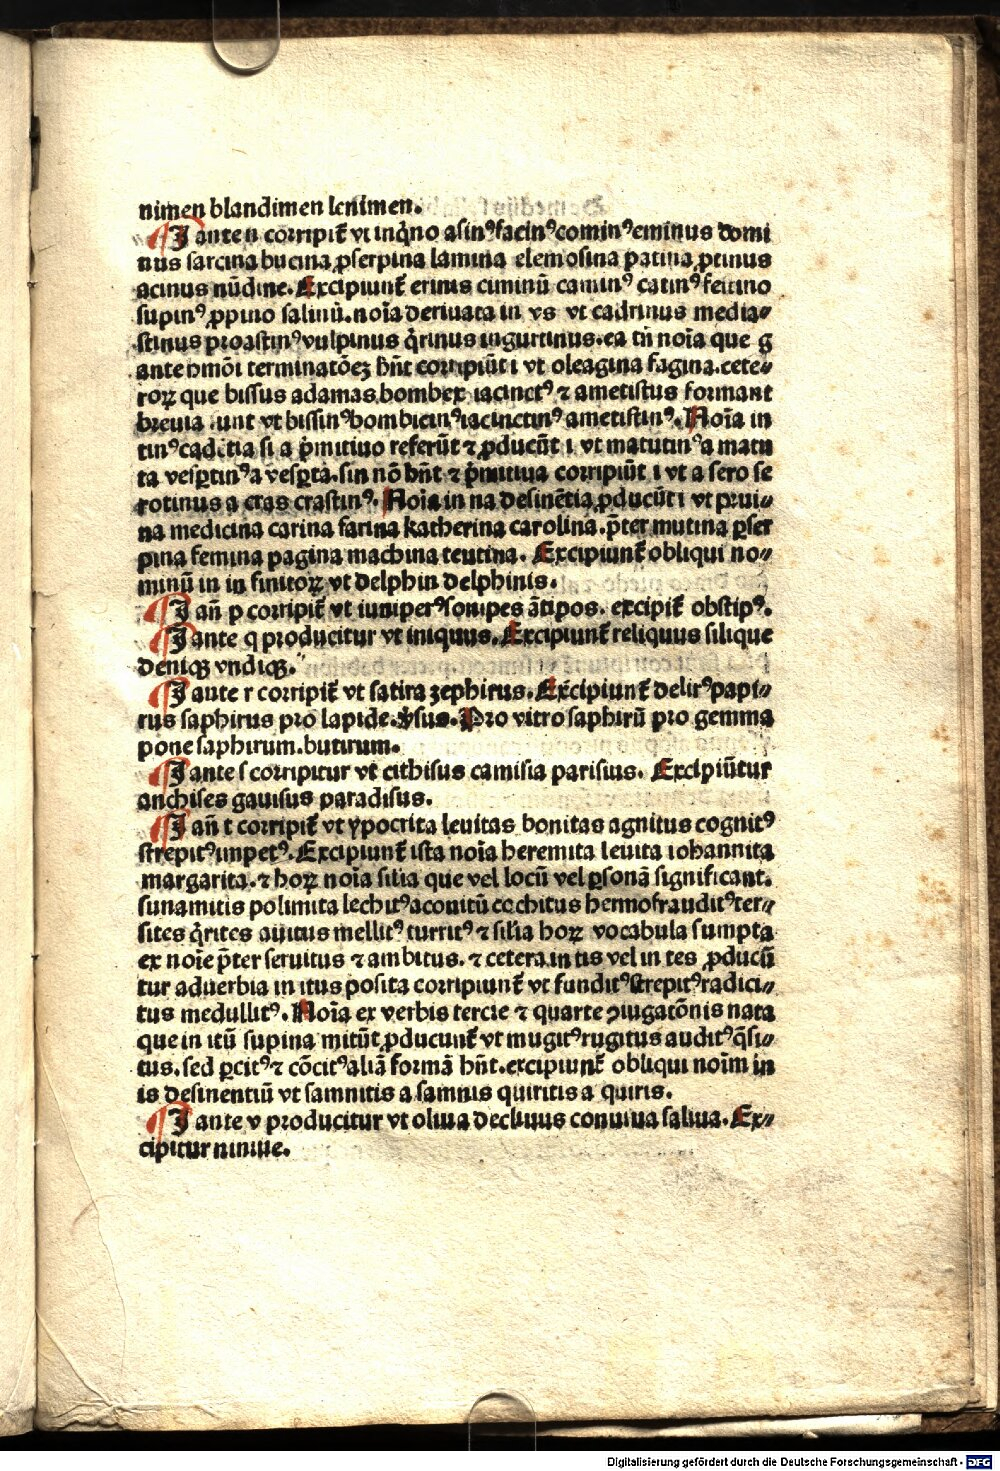 nimen blandimen lenimen.
I ante n corripit̄ vt inq̄no asinꝰ facinꝰ cominꝰ eminus domi
nus sarcina bucina ꝓserpina lamina elemosina patina ꝓtinus
acinus nūdine. Excipiunt̄ erinis ciminū caminꝰ catinꝰ festino
supinꝰ ꝓpino salinū. noīa deriuata in vs vt cadrinus media⸗
stinus proastinꝰ vulpinus q̄rinus ingurtinus. ea tn̄ noīa que g
ante hmōi terminatōeꝫ hn̄t corripiūt i vt oleagina fagina. cete⸗
roꝝ que bissus adamas bombex iacinctꝰ ⁊ ametistus formant
breuia sunt vt bissinꝰ bombicinꝰ iacinctinꝰ ametistinꝰ. Noīa in
tinꝰ cadētia si a p̄mitiuo referūt ⁊ ꝓducūt i vt matutinꝰ a matu
ta vesꝑtinꝰ a vesꝑta. sin nō hn̄t ⁊ p̄mitiua corripiūt i vt a sero se
rotinus a cras crastinꝰ. Noīa in na desinētia ꝓducūt i vt prui⸗
na medicina carina farina katherina carolina. p̄ter mutina ꝓser
pina femina pagina machina teutina. Excipiunt̄ obliqui no⸗
minū in in finitoꝝ vt delphin delphinis.
I an̄ p corripit̄ vt iuniperꝰ sonipes ātipos. excipit̄ obstipꝰ.
I ante q producitur vt iniquus. Excipiunt̄ reliquus silique
deniqꝫ vndiqꝫ.
I ante r corripit̄ vt satira zephirus. Excipiunt̄ delirꝰ papi⸗
rus saphirus pro lapide. v̄sus. Pro vitro saphirū pro gemma
pone saphirum. butirum.
I ante s corripitur vt cithisus camisia parisius. Excipiūtur
anchises gauisus paradisus.
I an̄ t corripit̄ vt ypocrita leuitas bonitas agnitus cognitꝰ
strepitꝰ impetꝰ. Excipiunt̄ ista noīa heremita leuita iohannita
margarita. ⁊ hoꝝ noīa silia que vel locū vel ꝑsonā significant.
sunamitis polimita lechitꝰ aconitū cochitus hermofrauditꝰ ter⸗
sites q̄rites auitus mellitꝰ turritꝰ ⁊ silia hoꝝ vocabula sumpta
ex noīe p̄ter seruitus ⁊ ambitus. ⁊ cetera in tis vel in tes ꝓducū
tur aduerbia in itus posita corripiunt̄ vt funditꝰ strepitꝰ radici⸗
tus medullitꝰ. Noīa ex verbis tercie ⁊ quarte ꝯiugatōnis nata
que in itū supina mitūt ꝓducunt̄ vt mugitꝰ rugitus auditꝰ q̄si⸗
tus. sed ꝑcitꝰ ⁊ cōcitꝰ aliā formā hn̄t. excipiunt̄ obliqui noīm in
is desinentiū vt samnitis a samnis quiritis a quiris.
I ante v producitur vt oliua decliuus conuiua saliua. Ex⸗
cipitur niniue.
Digitalisierung gefördert durch die Deutsche Forschungsgemeinschaft - DFG